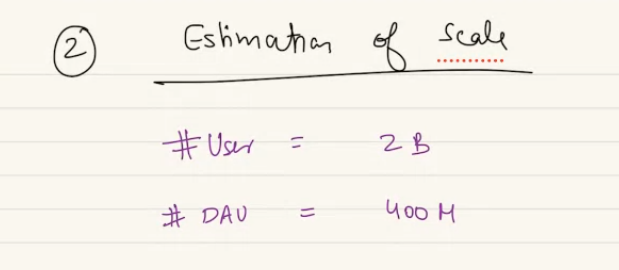 2 Estimation of scale
# User = 2 B
# DAU = 400 M